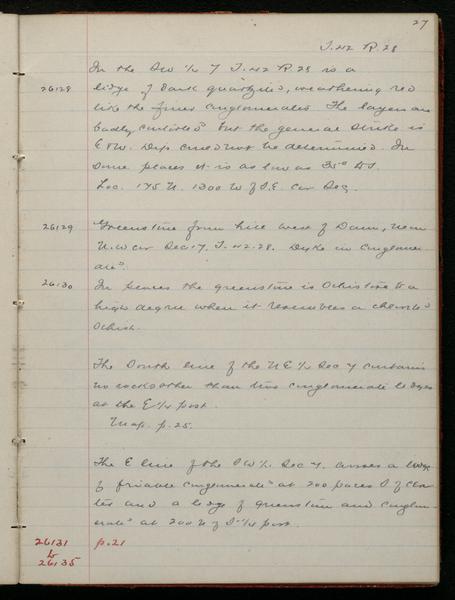 27
T. 42 R. 28
In the SW 1/4 7 T. 42 R. 28 is a
26128 ledge of dark quartzite, weathering red
like the finer conglomerates. The layers are
badly contorted but the general strike is
E & W. Dip could not be determined. In
some places it is as low as 35° to S.
Loc. 175 N. 1300 W of S.E. cor Sec.
26129 Greenstone from hill west of Dam, near
N.W cor Sec 17, T. 42. 28. Dyke in conglomer-
ate.
26130 In places the greenstone is schistose to a
high degree when it resembles a chlorite
schist.
The South line of the NE 1/4 Sec 7 contains
no rocks other than this conglomerate ledges
at the E 1/4 post.
Map. p. 25.
The E line of the SW 1/4 Sec 7. crosses a ledge
of friable conglomerate at 200 paces S of
and a ledge of greenstone and conglom-
erate at 200 N of S 1/4 post.
26131 p. 21
to
26135